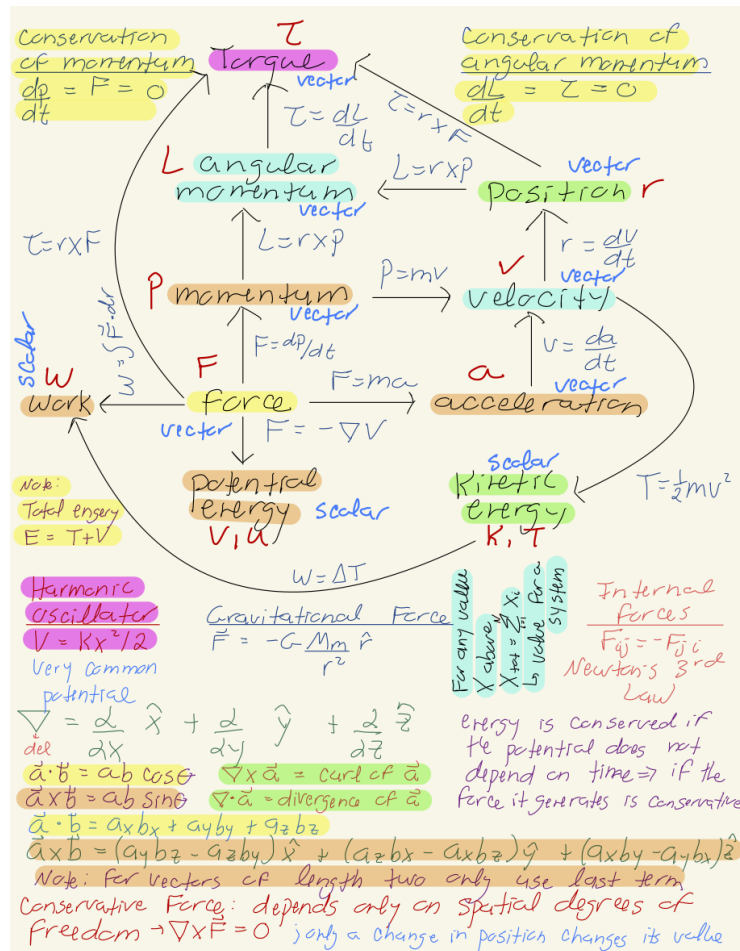 Conservation
of momentum
dp/dt = F = 0
τ
Torque
vector
Conservation of
angular momentum
dL/dt = τ = 0
τ = dL/dt
τ=r×F
L angular
momentum
vector
L=r×p
vector
position r
τ=r×F
L=r×p
r = dv/dt
P momentum
vector
P=mv
v
vector
velocity
W=∫F⃗·dr
F=dp/dt
v = da/dt
scalar
W
work
F
force
vector
F=ma
a
vector
acceleration
F = -∇V
Note:
Total engery
E = T+V
potential
energy
V, U
scalar
scalar
Kinetic
energy
K, T
T=½mv²
W=ΔT
Harmonic
oscillator
V = Kx²/2
very common
potential
Gravitational Force
F⃗ = -G Mm/r² r̂
For any value
X above,
X tot = Σ i=1 N Xi
↳ value for a
system
Internal
forces
Fij = -Fji
Newton's 3rd
Law
∇ = ∂/∂x x̂ + ∂/∂y ŷ + ∂/∂z ẑ
del
a⃗·b⃗ = ab cosθ
∇×a⃗ = curl of a⃗
a⃗×b⃗ = ab sinθ
∇·a⃗ = divergence of a⃗
energy is conserved if
the potential does not
depend on time ⇒ if the
force it generates is conservative
a⃗·b⃗ = axbx + ayby + azbz
a⃗×b⃗ = (aybz - azby)x̂ + (azbx - axbz)ŷ + (axby - aybx)ẑ
Note: for vectors of length two only use last term
Conservative Force: depends only on spatial degrees of
freedom → ∇×F⃗ = 0 ; only a change in position changes its value